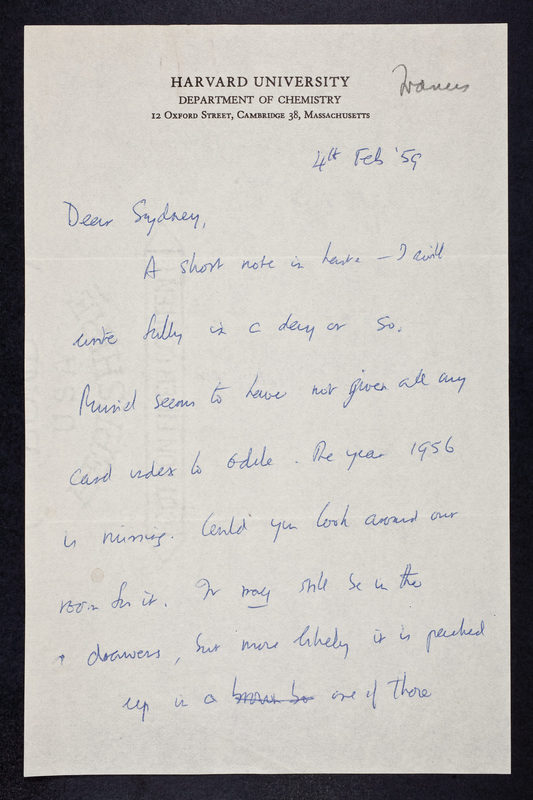 HARVARD UNIVERSITY
DEPARTMENT OF CHEMISTRY
12 OXFORD STREET, CAMBRIDGE 38, MASSACHUSETTS
Francis
4th Feb '59
Dear Sydney,
A short note in haste – I will
write fully in a day or so.
seems to have not given all my
card index to Odile. The year 1956
is missing. Could you look around our
room for it. It may still be in the
drawers, but more likely it is packed
up in a brown bo one of those